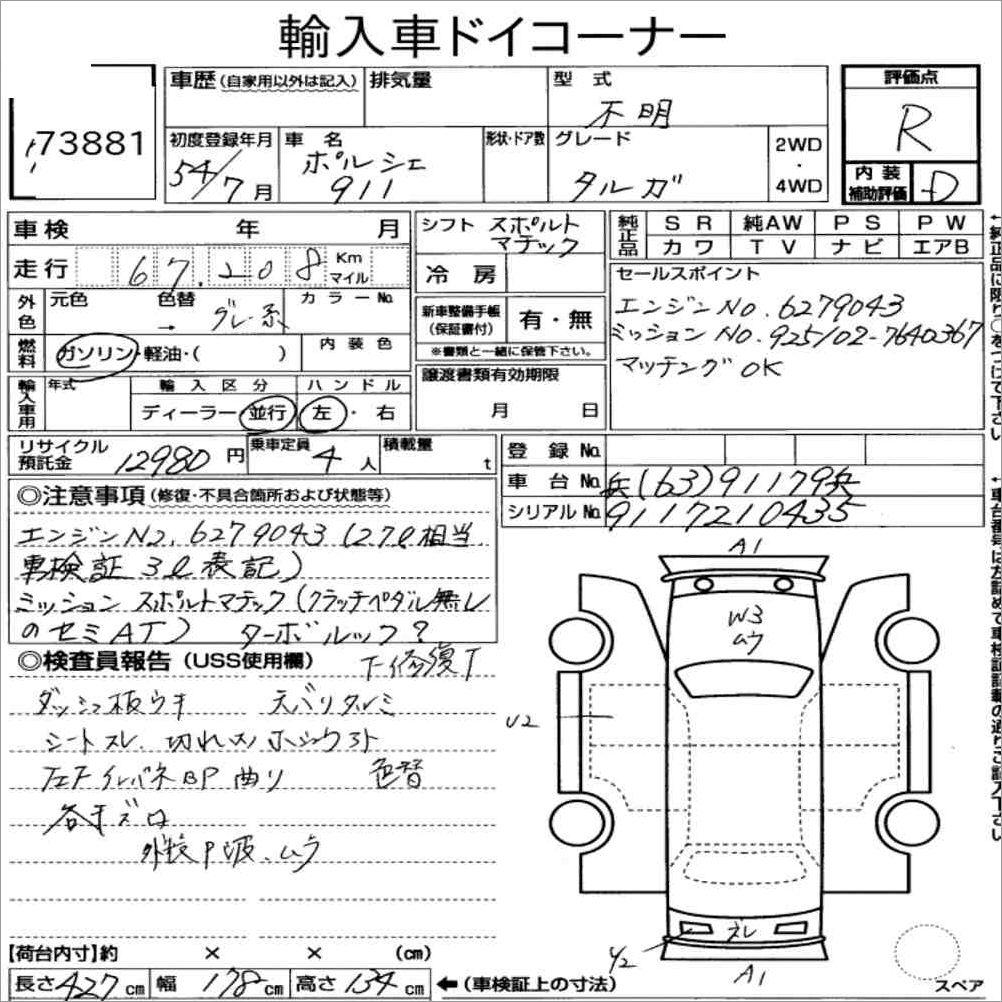 輸入車ドイコーナー
73881
車歴 (自家用以外は記入)
排気量
型 式
不明
評価点
R
初度登録年月
54/7月
車 名
ポルシェ
911
形状・ドア数
グレード
タルガ
2WD
・
4WD
内装
補助評価
D
車検 年 月
シフト スポルト
マチック
純正品
SR 純AW PS PW
カワ TV ナビ エアB
走行 67.208 Km
マイル
冷房
セールスポイント
エンジンNO.6279043
ミッションNO.925/02-7640367
マッチングOK
外色
元色 色替 カラーNo.
→ グレー系
新車整備手帳
(保証書付)
有・無
※書類と一緒に保管下さい。
燃料
ガソリン・軽油・( )
内装色
譲渡書類有効期限
月 日
輸入車用
年式
輸入区分
ディーラー・並行
ハンドル
左・右
リサイクル
預託金
12980円
乗車定員
4人
積載量
t
登録No.
車台No. 兵(63)91179兵
シリアルNo. 9117210435
◎注意事項(修復・不具合箇所および状態等)
エンジンNo.6279043(2.7ℓ相当
車検証 3ℓ表記)
ミッション スポルトマチック(クラッチペダル無し
のセミAT) ターボルック?
◎検査員報告(USS使用欄)
下修復T
ダッシュ板ウキ 天バリタルミ
シートスレ、切れ
曲り 色替
外装P波、ムラ
A1
W3
ムラ
U2
ズレ
Y2
A1
【荷台内寸】約 × × (cm)
長さ427cm 幅178cm 高さ134cm
←(車検証上の寸法)
スペア
←純正品に限り○をつけて下さい
←車台番号は左詰めで車検証記載の通りご記入下さい